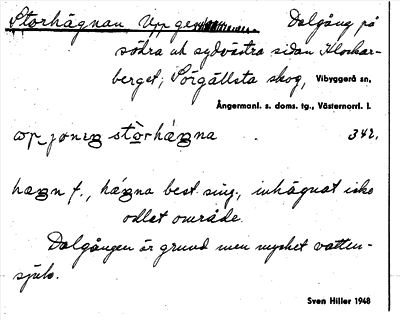 Storhägnan Uppge Dalgång på
södra och sydvästra sidan Klockar-
berget, Sörgällsta skog, Vibyggerå sn,
Ångermanl. s. doms. tg., Västernorrl. l.
stòrhágna 342.
hagn f., hágna best sing., inhägnat icke
odlat område.
Dalgången är grund men mycket vatten-
sjuk.
Sven Hiller 1948